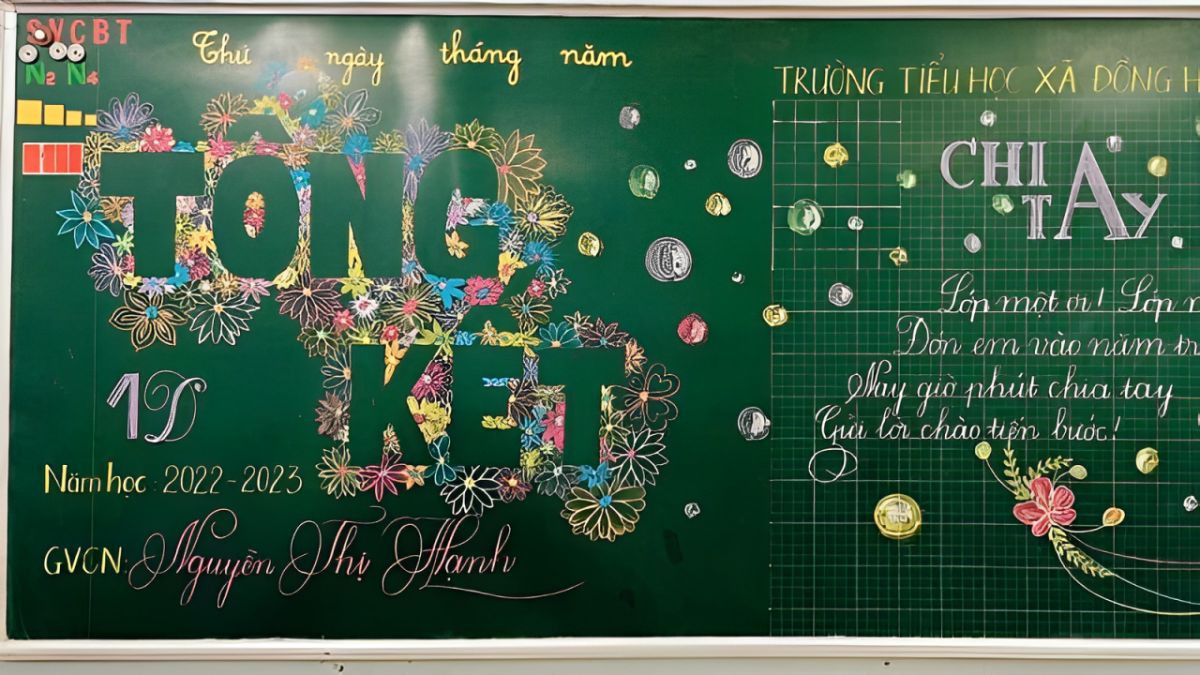 SVCBT
N2 N4
Thứ ngày tháng năm
TỔNG
KẾT
1D
Năm học: 2022-2023
GVCN: Nguyễn Thị Hạnh
TRƯỜNG TIỂU HỌC XÃ ĐỒNG H
CHIA
TAY
Lớp một ơi! Lớp
Đón em vào năm
Nay giờ phút chia tay
Gửi lời chào tiến bước!